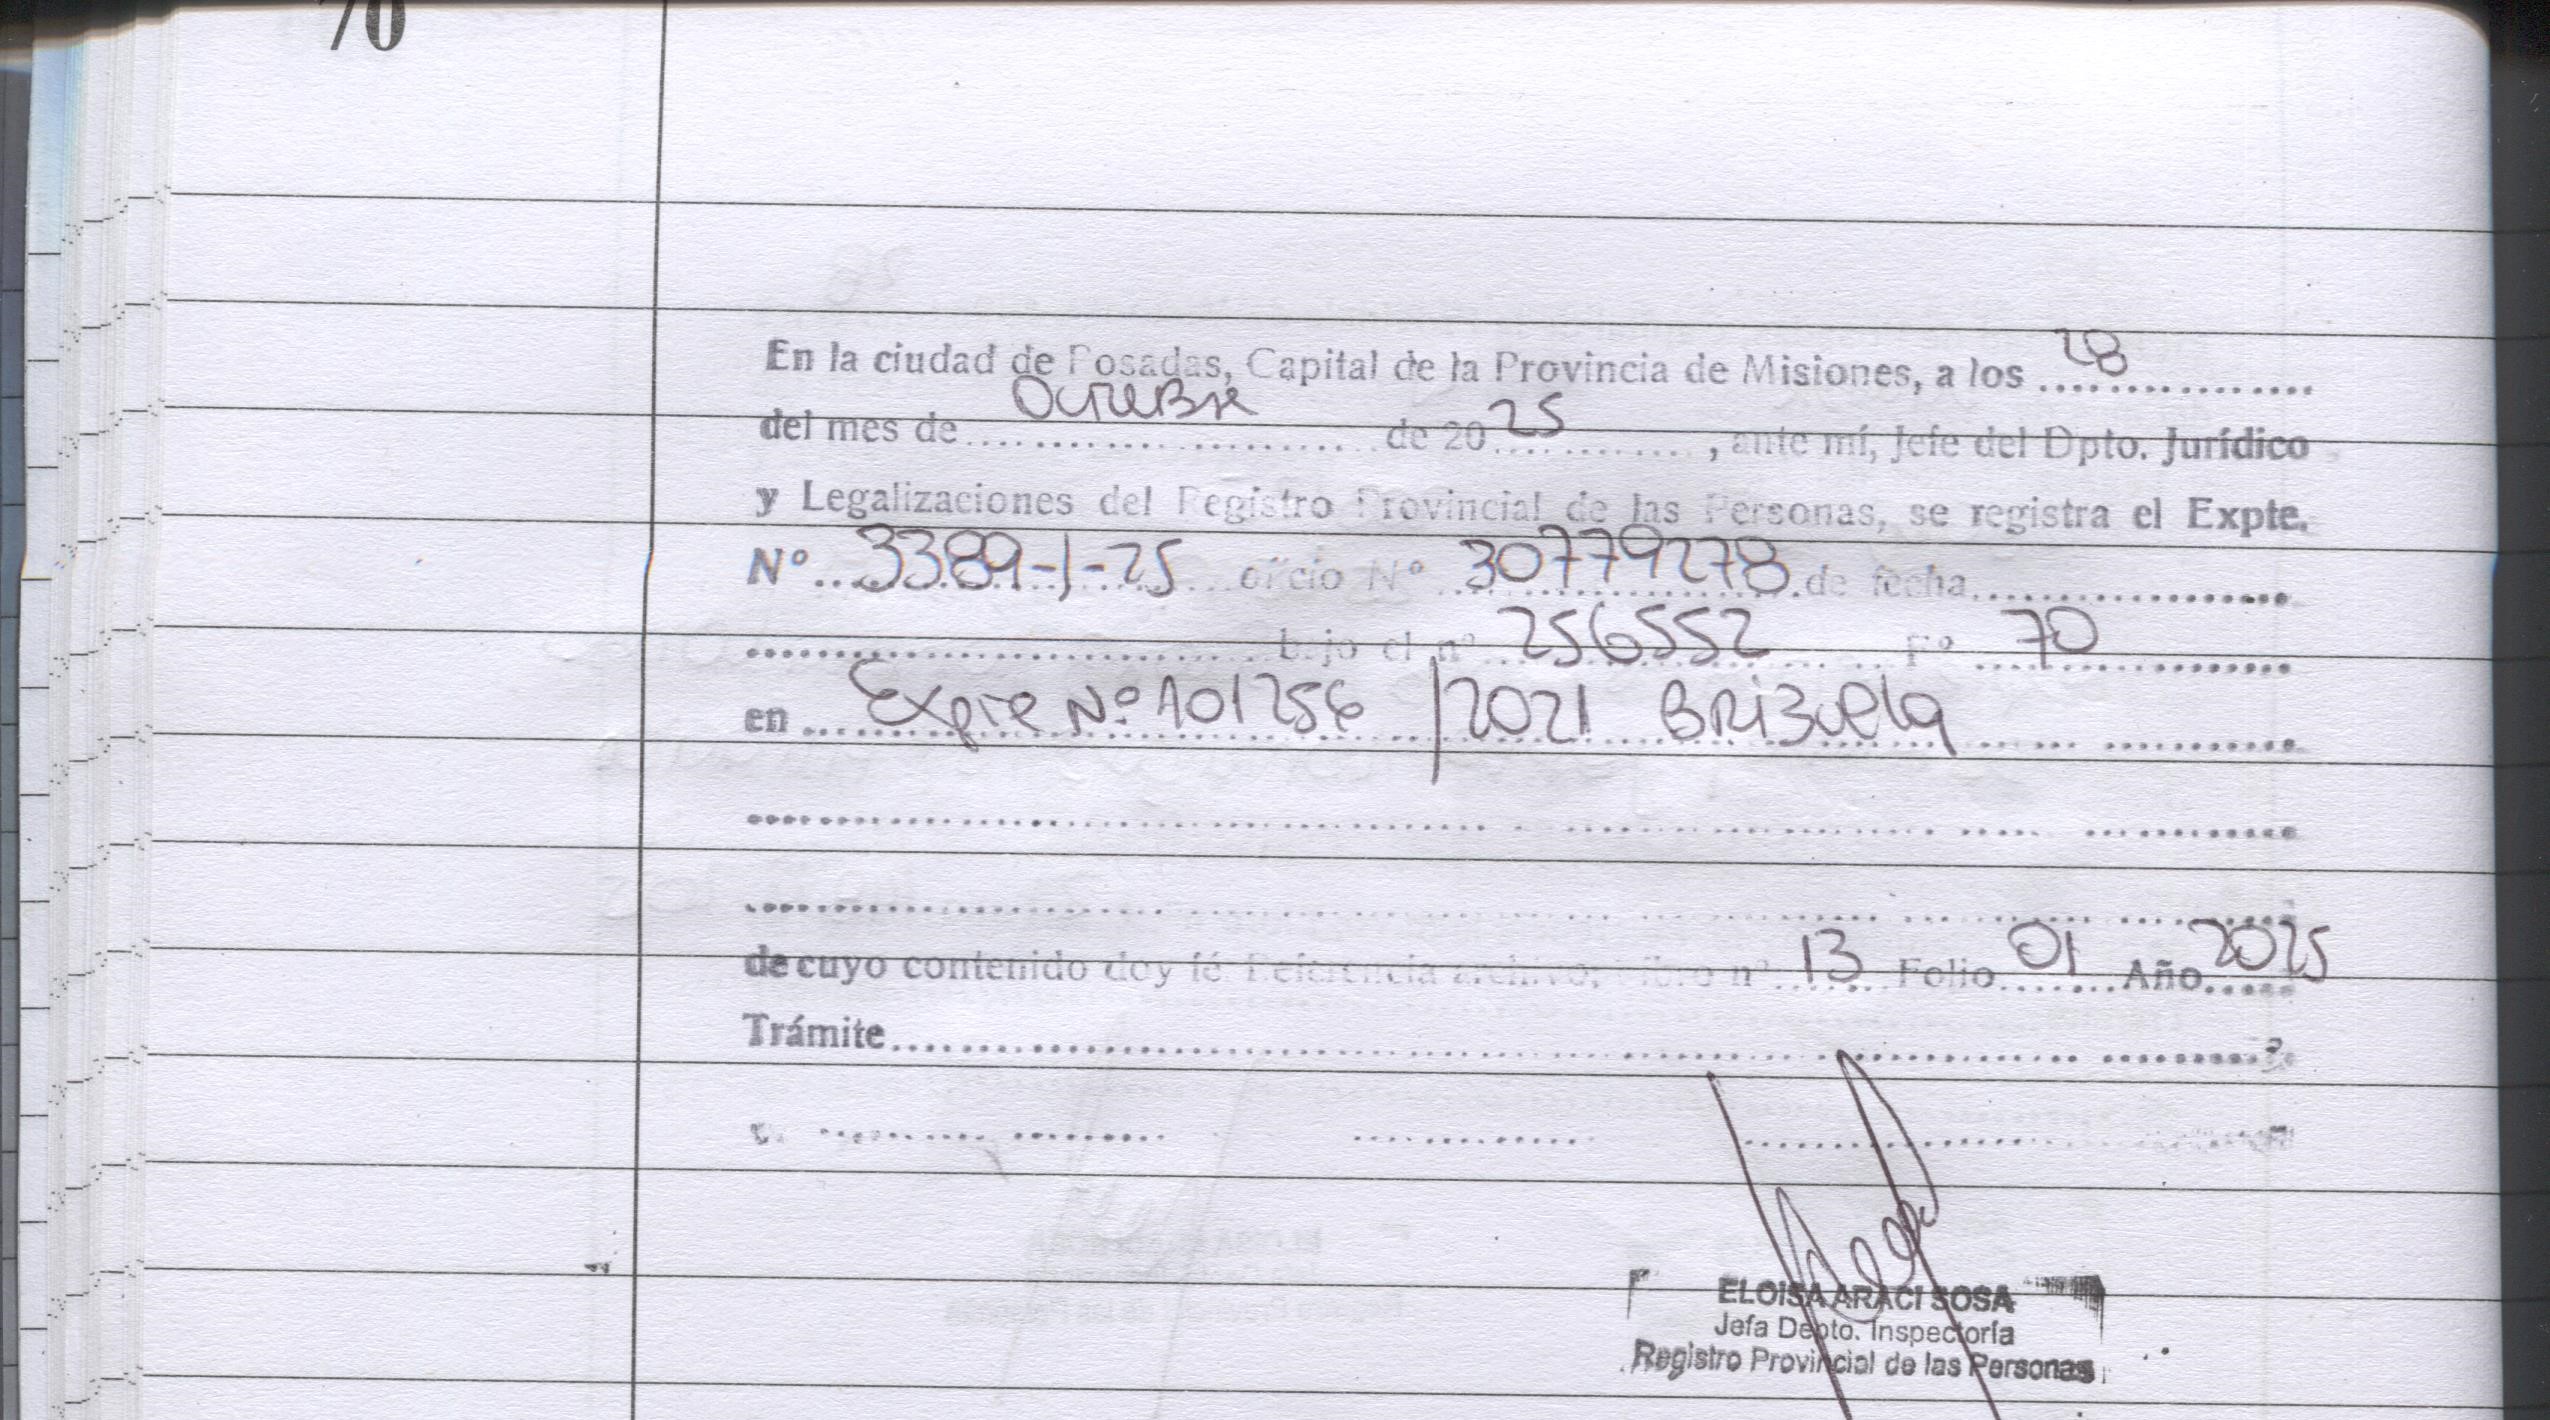 70
En la ciudad de Posadas, Capital de la Provincia de Misiones, a los 28
del mes de Octubre de 2025, ante mí, Jefe del Dpto. Jurídico
y Legalizaciones del Registro Provincial de las Personas, se registra el Expte.
Nº 3389-1-25 oficio Nº 30779278 de fecha
bajo el nº 256552 Fº 70
en Expte Nº 101256/2021 BRIZuela
de cuyo contenido doy fé. Referencia archivo, libro nº 13 Folio 01 Año 2025
Trámite
ELOISA ARACI SOSA
Jefa Depto. Inspectoría
Registro Provincial de las Personas